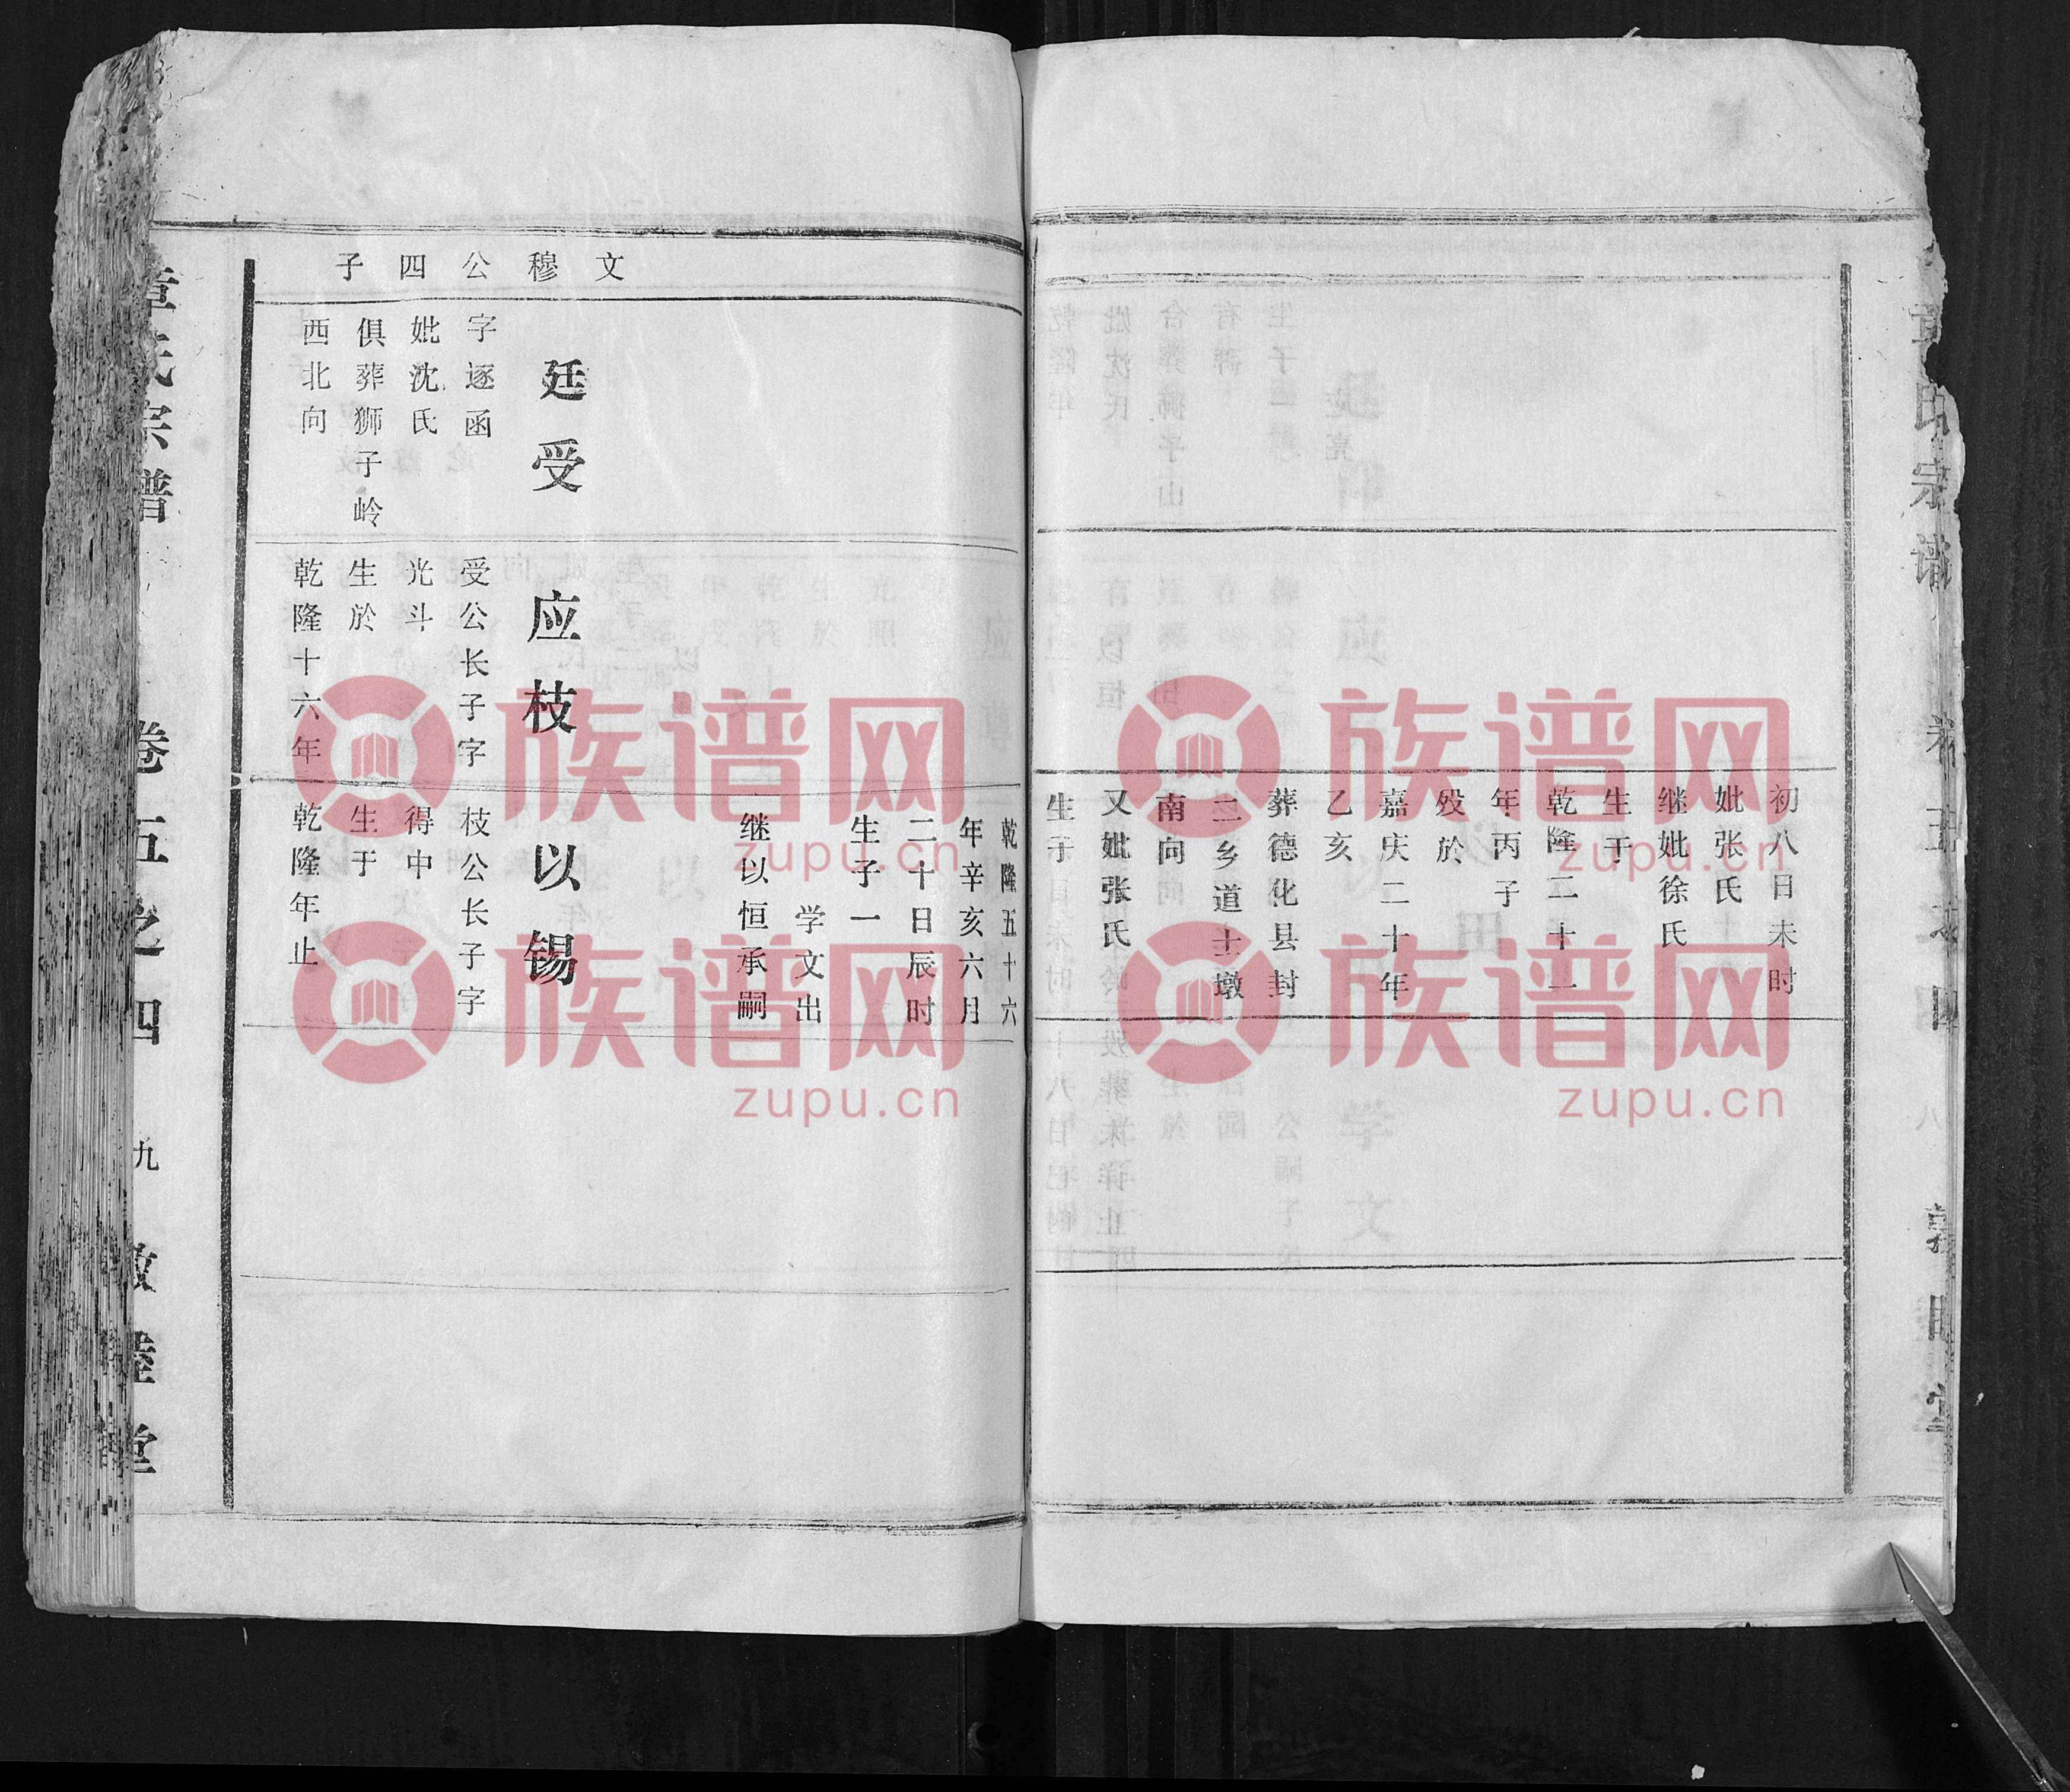 初八日未时
妣张氏
继妣徐氏
生于
乾隆二十一
年丙子
殁於
嘉庆二十年
乙亥
葬德化县封
二乡道士墩
南向
又妣张氏
生于
乾隆五十六
年辛亥六月
二十日辰时
生子一
学文出
继以恒承嗣
文穆公四子
廷受
字逐函
妣沈氏
俱葬狮子岭
西北向
应枝
受公长子字
光斗
生於
乾隆十六年
以锡
枝公长子字
得中
生于
乾隆年止
章氏宗谱 卷五之四 九 敦睦堂
族谱网
zupu.cn
族谱网
zupu.cn
族谱网
zupu.cn
族谱网
zupu.cn